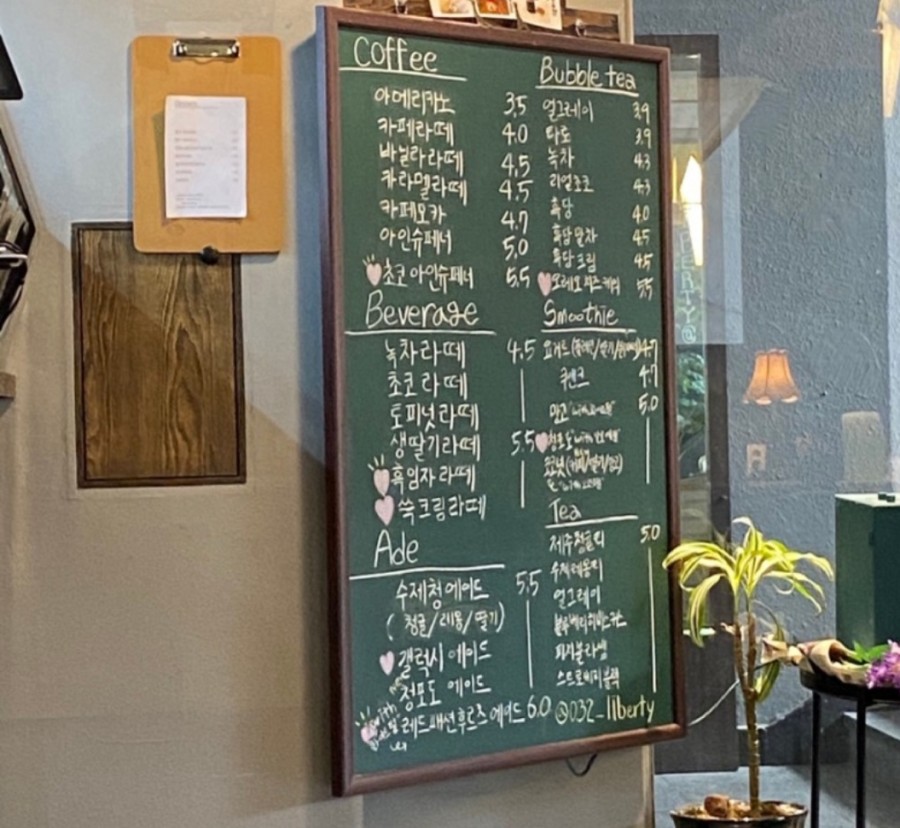 Coffee
아메리카노 3.5
카페라떼 4.0
바닐라라떼 4.5
카라멜라떼 4.5
카페모카 4.7
아인슈페너 5.0
초코아인슈페너 5.5
Beverage
녹차라떼 4.5
초코라떼
토피넛라떼
생딸기라떼 5.5
흑임자라떼
쑥크림라떼
Ade
수제청에이드 5.5
(청귤/레몬/딸기)
갤럭시에이드
청포도 에이드
with
레드패션후르츠에이드 6.0
Bubble tea
얼그레이 3.9
타로 3.9
녹차 4.3
리얼초코 4.3
흑당 4.0
흑당말차 4.5
흑당크림 4.5
오레오치즈케익 5.5
Smoothie
요거트 4.7
쿠앤크 4.7
망고 5.0
청포도
코코넛
Tea
제주청귤티 5.0
수제레몬티
얼그레이
블루베리히비스커스
피치블라썸
@032_liberty